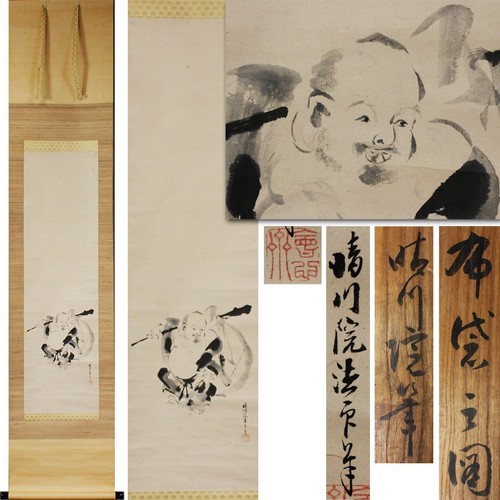 晴川院法印筆
晴川院筆
布袋之圖